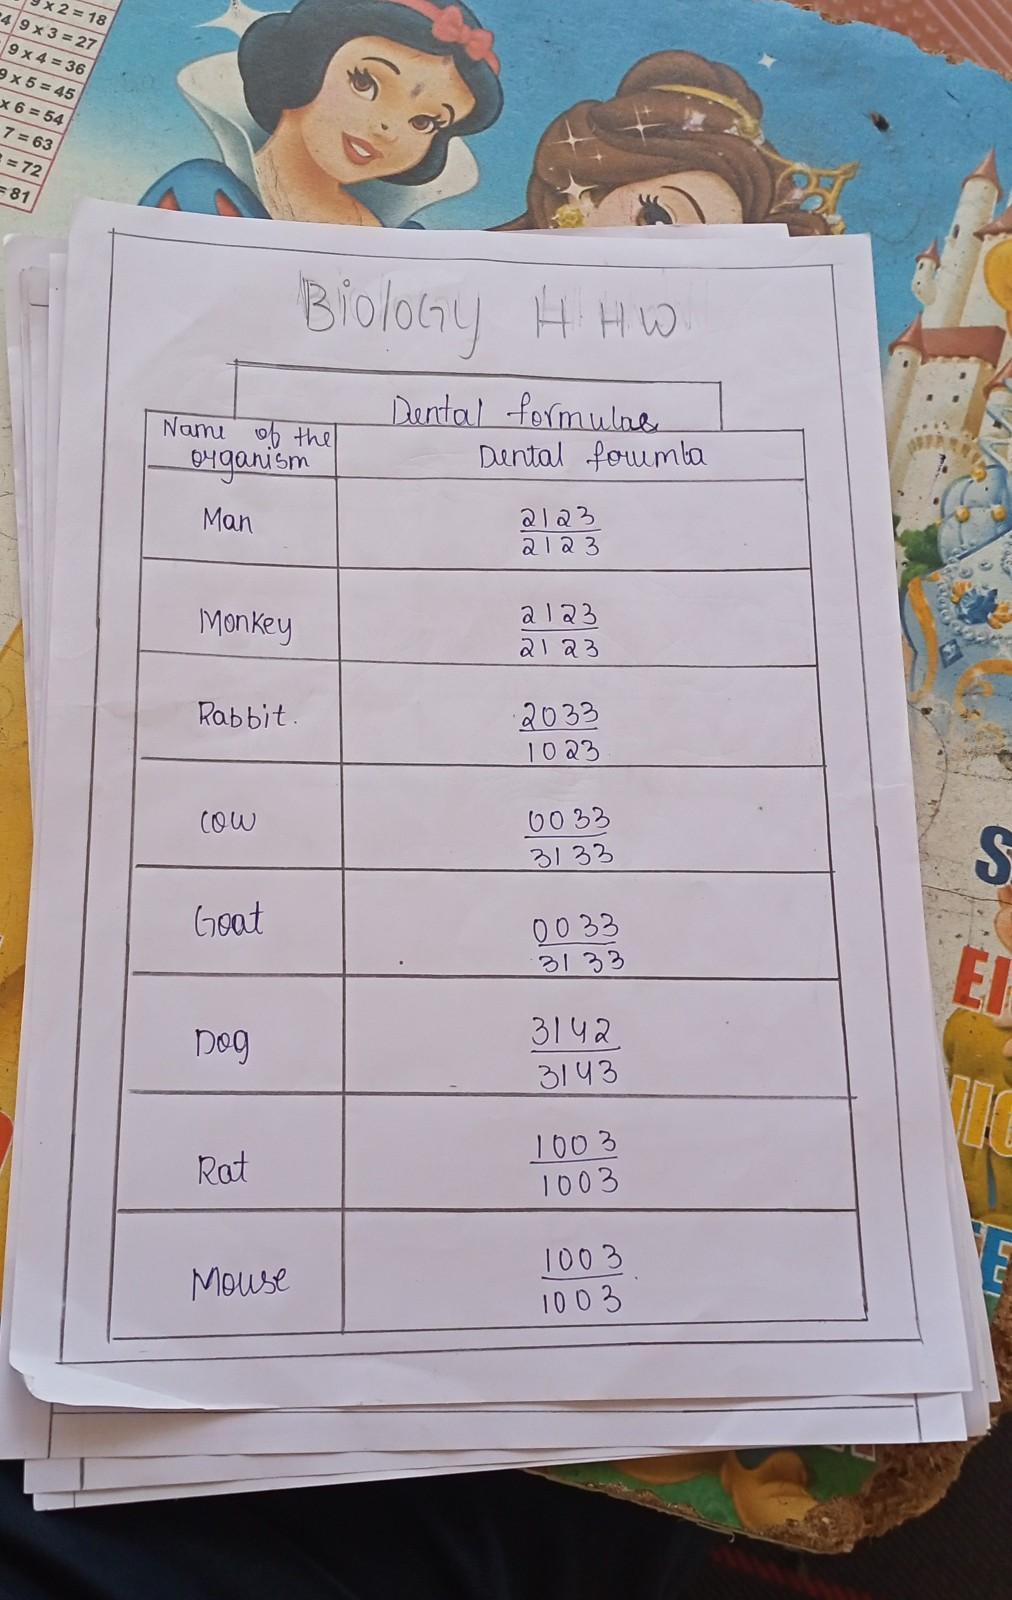 9 x 2 = 18
9 x 3 = 27
9 x 4 = 36
9 x 5 = 45
x 6 = 54
7 = 63
= 72
= 81
Biology HHW
Dental formulas
Name of the organism
Dental forumla
Man
2123
2123
Monkey
2123
2123
Rabbit.
2033
1023
cow
0033
3133
Goat
0033
3133
Dog
3142
3143
Rat
1003
1003
Mouse
1003
1003